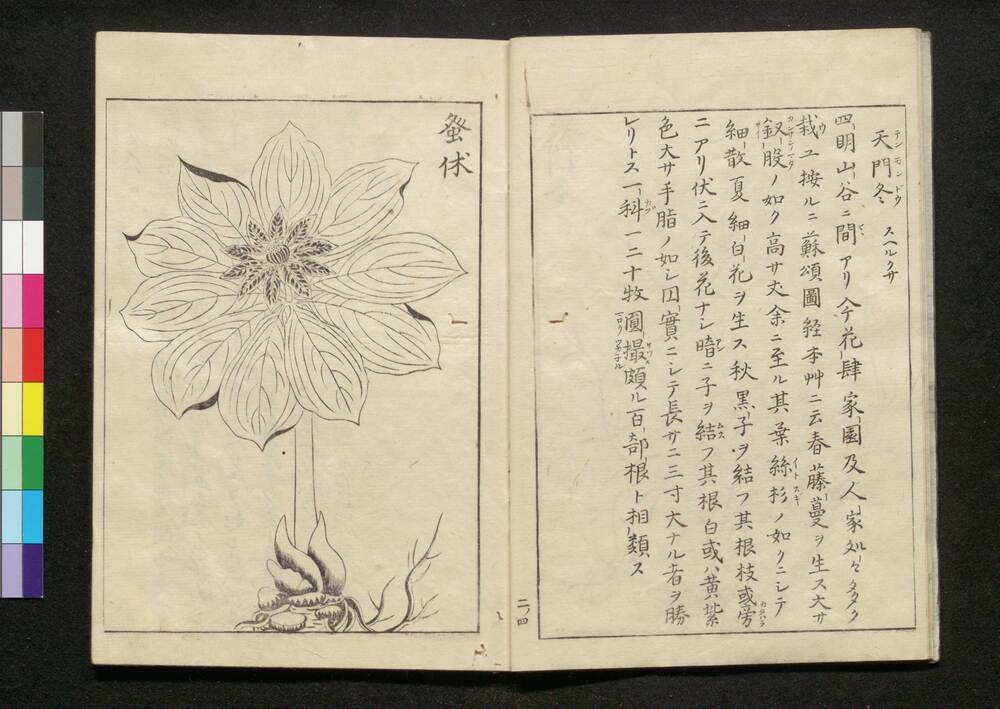 天門冬 テンモンドウ スヘルクサ
四明山谷ニ間アリ今花肆家園及人家処々タク
栽ユ按ルニ蘇頌圖経本艸ニ云春藤蔓ヲ生ス大サ
釵股ノ如ク高サ丈余ニ至ル其葉絲杉ノ如クニシテ
細散夏細白花ヲ生ス秋黒子ヲ結フ其根枝或旁
ニアリ伏ニ入テ後花ナシ暗ニ子ヲ結フ其根白或ハ黄紫
色大サ手脂ノ如シ囚實ニシテ長サ二三寸大ナル者ヲ勝
レリトス一科一二十牧圓撮頗ル百部根ト相類ス
二ノ四
蚤休